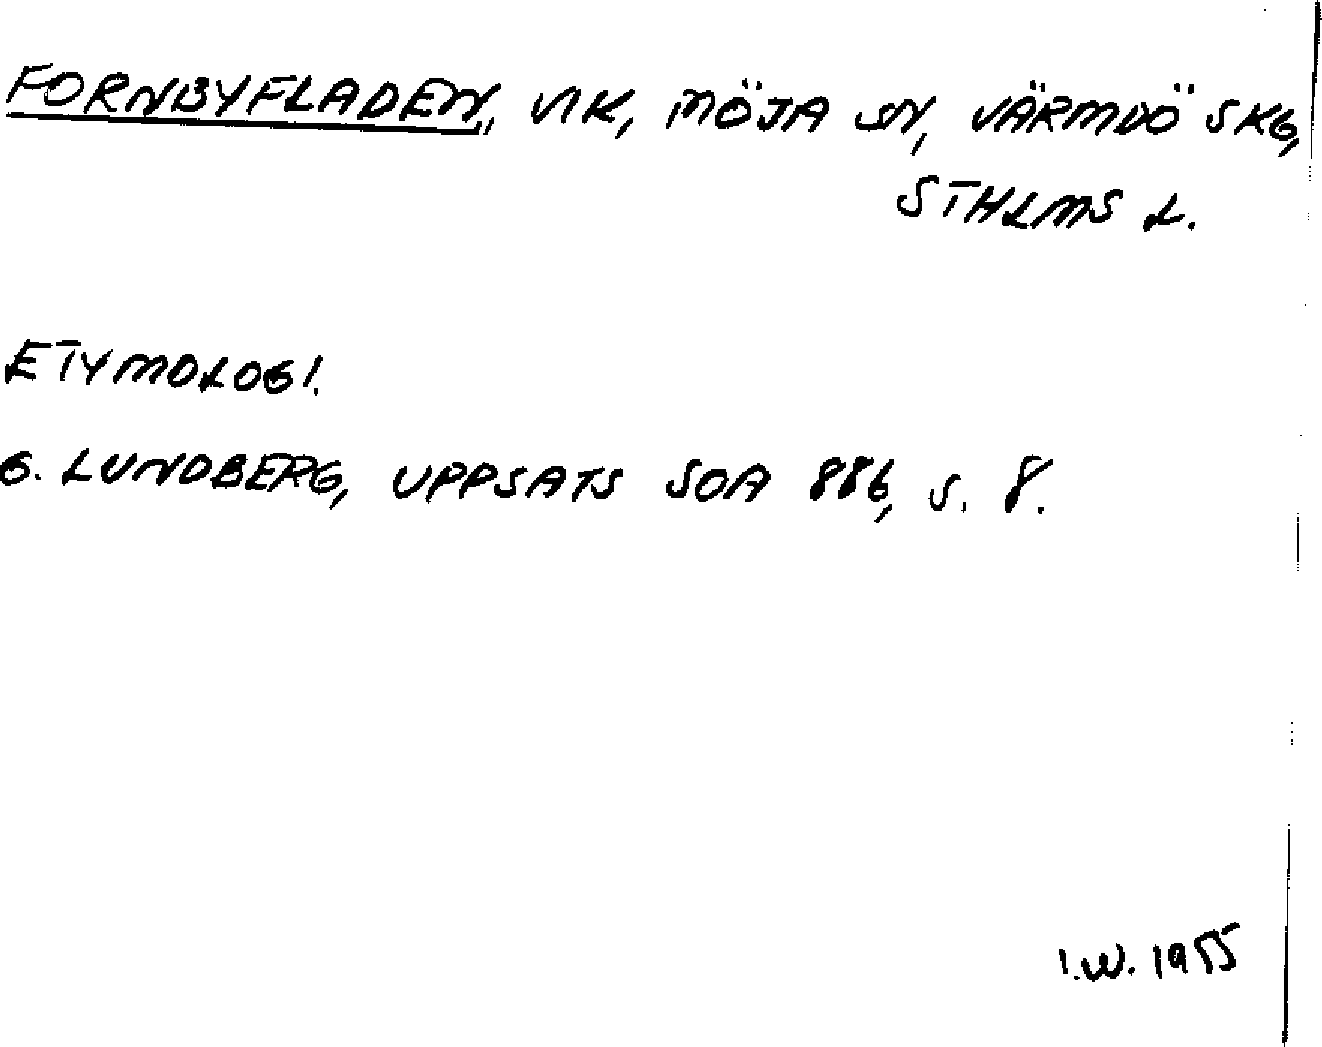 FORNBYFLADEN, VIK, MÖJA SN, VÄRMDÖ SKG,
STHLMS L.
ETYMOLOGI.
G. LUNDBERG, UPPSATS SOA 886, S. 8.
I.W. 1955